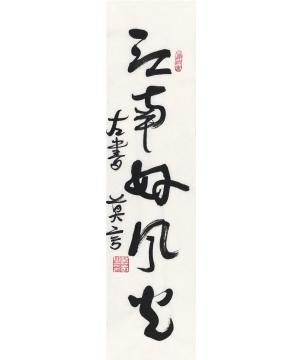 江南好风光
左書 莫言